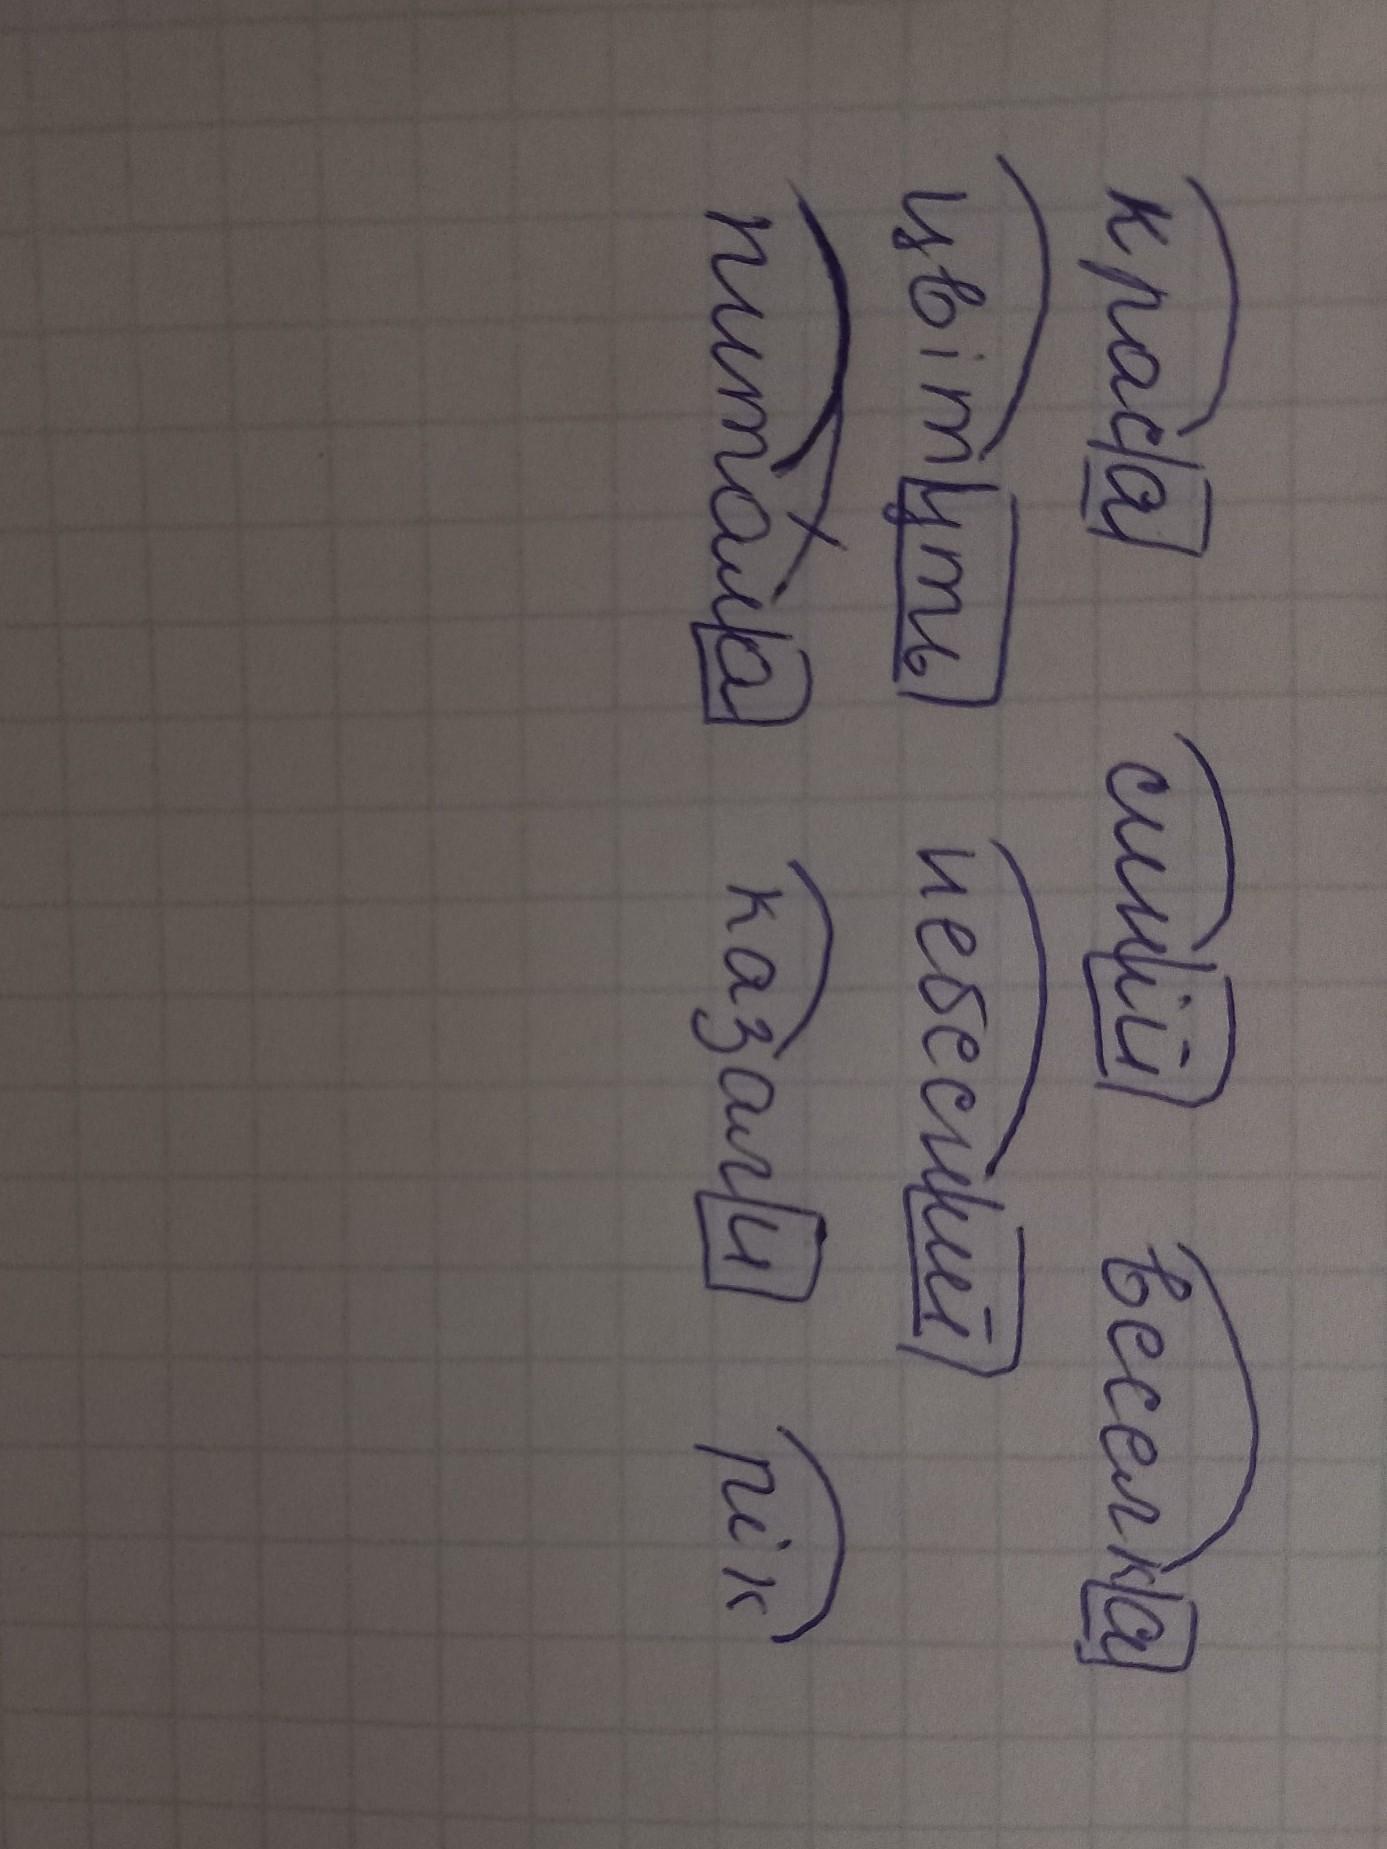 краса синій веселка
цвітуть небесний
питала казали рік